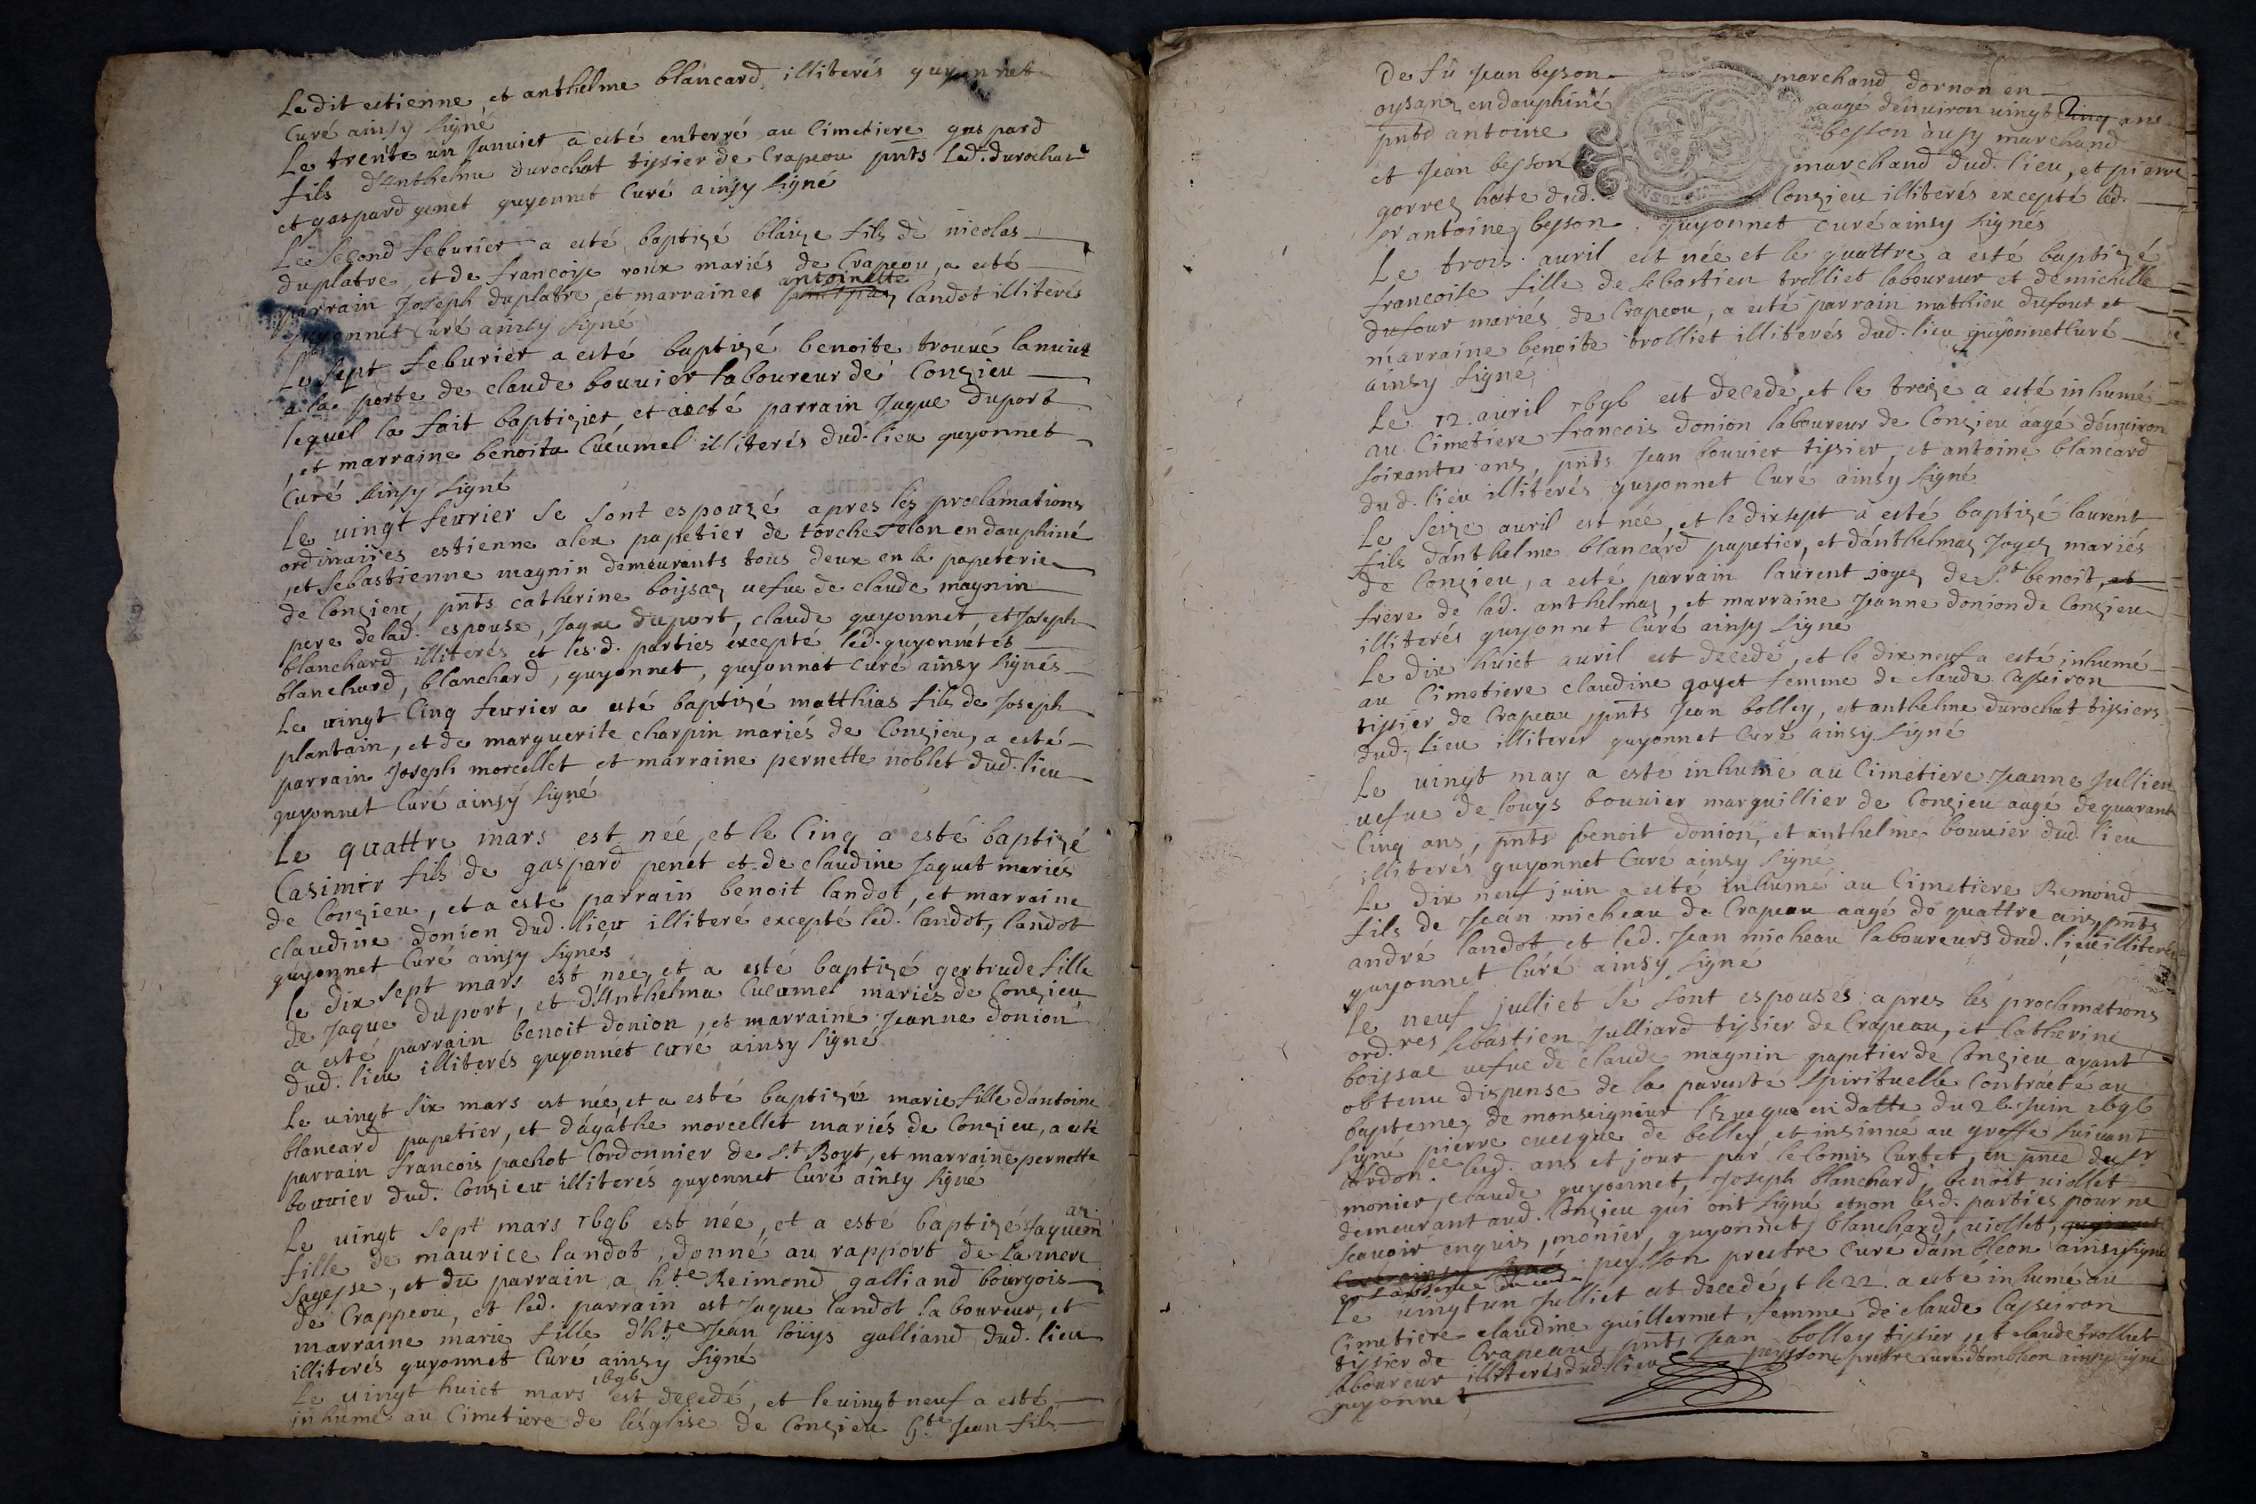 Le dit estienne et anthelme blancard illiterés guyonnet
Curé ainsy signé
Le trente un Januier a esté enterré au Cimetiere gaspard
fils d'Anthelme durochat tissier de Crapeou pnts led. durochat
et gaspard genet guyonnet Curé ainsy signé
Le second feburier a esté baptizé blaize fils de nicolas
duplatre, et de francoise roux mariés de Crapeou, a esté
parrain Joseph duplatre, et marraine antoinette landot illiterés
guyonnet Curé ainsy signé
Le sept feburier a esté baptizé benoite trouué lanuit
a la porte de claude bouuier laboureur de Conzieu
lequel la fait baptizier et aesté parrain Jaque duport
, et marraine benoita Cucumel illiterés dud. lieu guyonnet
Curé ainsy signé
Le uingt feurier se sont espouzé apres les proclamations
ordinaires estienne alex papetier de torchefelon en dauphiné
, et sebastienne magnin demeurants tous deux en la papeterie
de Conzieu, pnts catherine boissaz uefue de claude magnin
pere delad. espouse, Jaque duport, claude guyonnet, et Joseph
blanchard illiterés et les.d. parties excepté led. guyonnet et
blanchard, blanchard, guyonnet, guyonnet curé ainsy signés
Le uingt Cinq feurier a esté baptizé matthias fils de Joseph
plantain, et de marguerite charpin mariés de Conzieu, a esté
parrain Joseph morcellet et marraine pernette noblet dud. lieu
guyonnet Curé ainsy signé
Le quattre mars est née, et le Cinq a esté baptizé
Casimir fils de gaspard penet et de claudine Jaquet mariés
de Conzieu, et a esté parrain benoit landot, et marraine
claudine donion dud. lieu illiteré excepté led. landot, landot
guyonnet Curé ainsy signés
Le dix sept mars est née, et a esté baptizé gertrude fille
de Jaque duport, et d'Anthelma Cucumel mariés de Conzieu
a esté parrain benoit donion, et marraine Jeanne donion
dud. lieu illiterés guyonnet curé ainsy signé
Le uingt six mars est née, et a esté baptizée marie fille dantoine
blancard papetier, et dagathe morcellet mariés de Conzieu, a esté
parrain francois pachot Cordonnier de St Boyt, et marraine pernette
bouuier dud. Conzieu illiterés guyonnet Curé ainsy signe
Le uingt sept mars 1696 est née, et a esté baptizé Jaquem
fille de maurice landot, donné au rapport de la mere
sagesse, et du parrain a hte Reimond galliand bourgois
de Crappeou, et led. parrain est Jaque landot laboureur, et
marraine marie fille dhte Jean louys galliand dud. lieu
illiterés guyonnet Curé ainsy signé
Le uingt huict mars 1696 est decedé, et le uingt neuf a esté
inhumé au Cimetiere de lesglise de Conzieu hte Jean fils
De fû Jean besson marchand dornon en
oysanz en dauphiné aagé denuiron uingt Cinq ans
pnts antoine besson aussy marchand
et Jean besson marchand dud. lieu, et pierre
gorrez hoste dud. Conzieu illiterés excepté led.
sr antoine, besson, guyonnet curé ainsy signés
Le trois auril est née et le quattre a esté baptizé
francoise fille de sebastien trolliet laboureur et de michelle
dufour mariés de Crapeou, a esté parrain mathieu dufour et
marraine benoite trolliet illiterés dud. lieu guyonnet Curé
ainsy signé
Le 12. auril 1696 est decede, et le treize a esté inhumé
au Cimetiere francois donion laboureur de Conzieu aagé denuiron
soixante ans, pnts Jean bouuier tissier, et antoine blancard
dud. lieu illiterés guyonnet Curé ainsy signé
Le seize auril est née, et le dixsept a esté baptizé laurent
fils danthelme blancard papetier, et danthelmaz Jogez mariés
de Conzieu, a esté parrain laurent jogez de St benoit, et
frere de lad. anthelmaz, et marraine Jeanne donion de Conzieu
illiterés guyonnet Curé ainsy signé
Le dix huict auril est decedé, et le dix neuf a esté inhumé
au Cimetiere claudine goyet femme de claude Casseiron
tissier de Crapeau pnts Jean bolley, et anthelme durochat tissiers
dud. lieu illiterés guyonnet Curé ainsy signé
Le uingt may a esté inhumé au Cimetiere Jeanne Jullien
uefue de louys bouuier marguillier de Conzieu aagé de quarante
Cinq ans, pnts benoit donion, et anthelme bouuier dud lieu
illiterés guyonnet Curé ainsy signé
Le dix neuf juin a esté inhumé au Cimetiere Remond
fils de Jean micheau de Crapeau aagé de quattre ans, pnts
andré landot et led. Jean micheau laboureurs dud. lieu illiterés
guyonnet Curé ainsy signe
Le neuf julliet se sont espousés apres les proclamations
ord.res sebastien Julliard tissier de Crapeau, et Catherine
boissac uefue de claude magnin papetier de Conzieu ayant
obtenu dispense de la parenté spirituelle Contracté au
baptesme, de monseigneur lEueque en datte du 26 Juin 1696
signé pierre euesque de belley et insinue au greffe suiuant
lordon.ce lesd. ans et jour par le Comis Curtet, en pnce du sr
monier, claude guyonnet, Joseph blanchard, benoit uiollet
demeurant aud. Conzieu qui ont signé et non lesd. parties pour ne
scauoir enquis, monier, guyonnet, blanchard, uiollet,
peysson prestre Curé dambleon ainsy signé
Le uingtun Julliet est decedé, et le 22. a esté inhumé au
Cimetiere claudine guillermet, femme de claude Casseiron
tissier de Crapeau, pnts Jean bolley tissier, et claude trolliet
laboureur illiterés dud. lieu peysson prestre curé dambleon ainsy signé
guyonnet